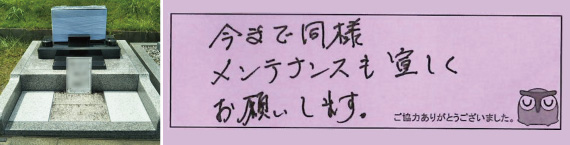 今まで同様
メンテナンスも宜しく
お願いします。
ご協力ありがとうございました。